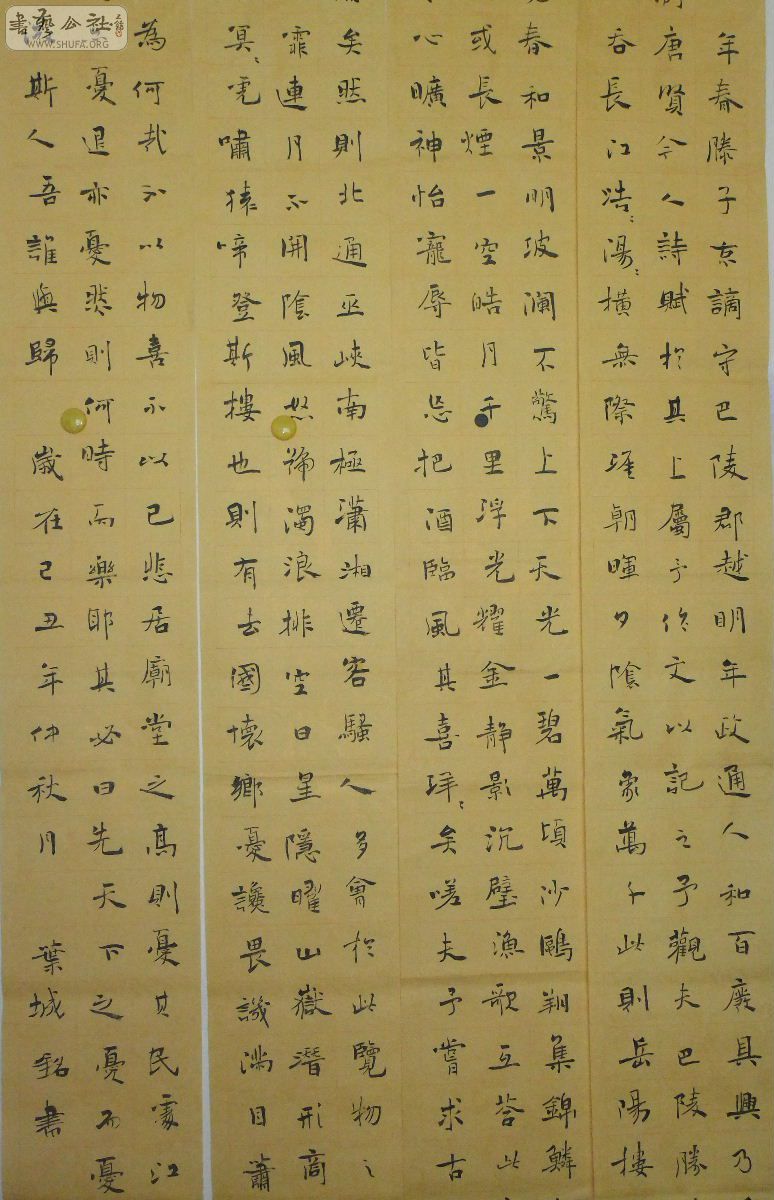 書藝公社
WWW.SHUFA.ORG
年春滕子京謫守巴陵郡越明年政通人和百廢具興乃
唐賢今人詩賦於其上屬予作文以記之予觀夫巴陵勝
吞長江浩〻湯〻橫無際涯朝暉夕陰氣象萬千此則岳陽樓
春和景明波澜不驚上下天光一碧萬頃沙鷗翔集錦鱗
或長煙一空皓月千里浮光耀金静影沉璧漁歌互荅此
心曠神怡寵辱皆忘把酒臨風其喜洋〻矣嗟夫予嘗求古
矣然則北通巫峽南極瀟湘遷客騷人多會於此覽物之
霏連月不開陰風怒號濁浪排空日星隱曜山嶽潛形商
冥〻虎嘯猿啼登斯樓也則有去國懷鄉憂讒畏譏滿目蕭
為何哉不以物喜不以己悲居廟堂之高則憂其民處江
憂退亦憂然則何時而樂耶其必曰先天下之憂而憂
斯人吾誰與歸 歲在己丑年仲秋月 葉城銘書